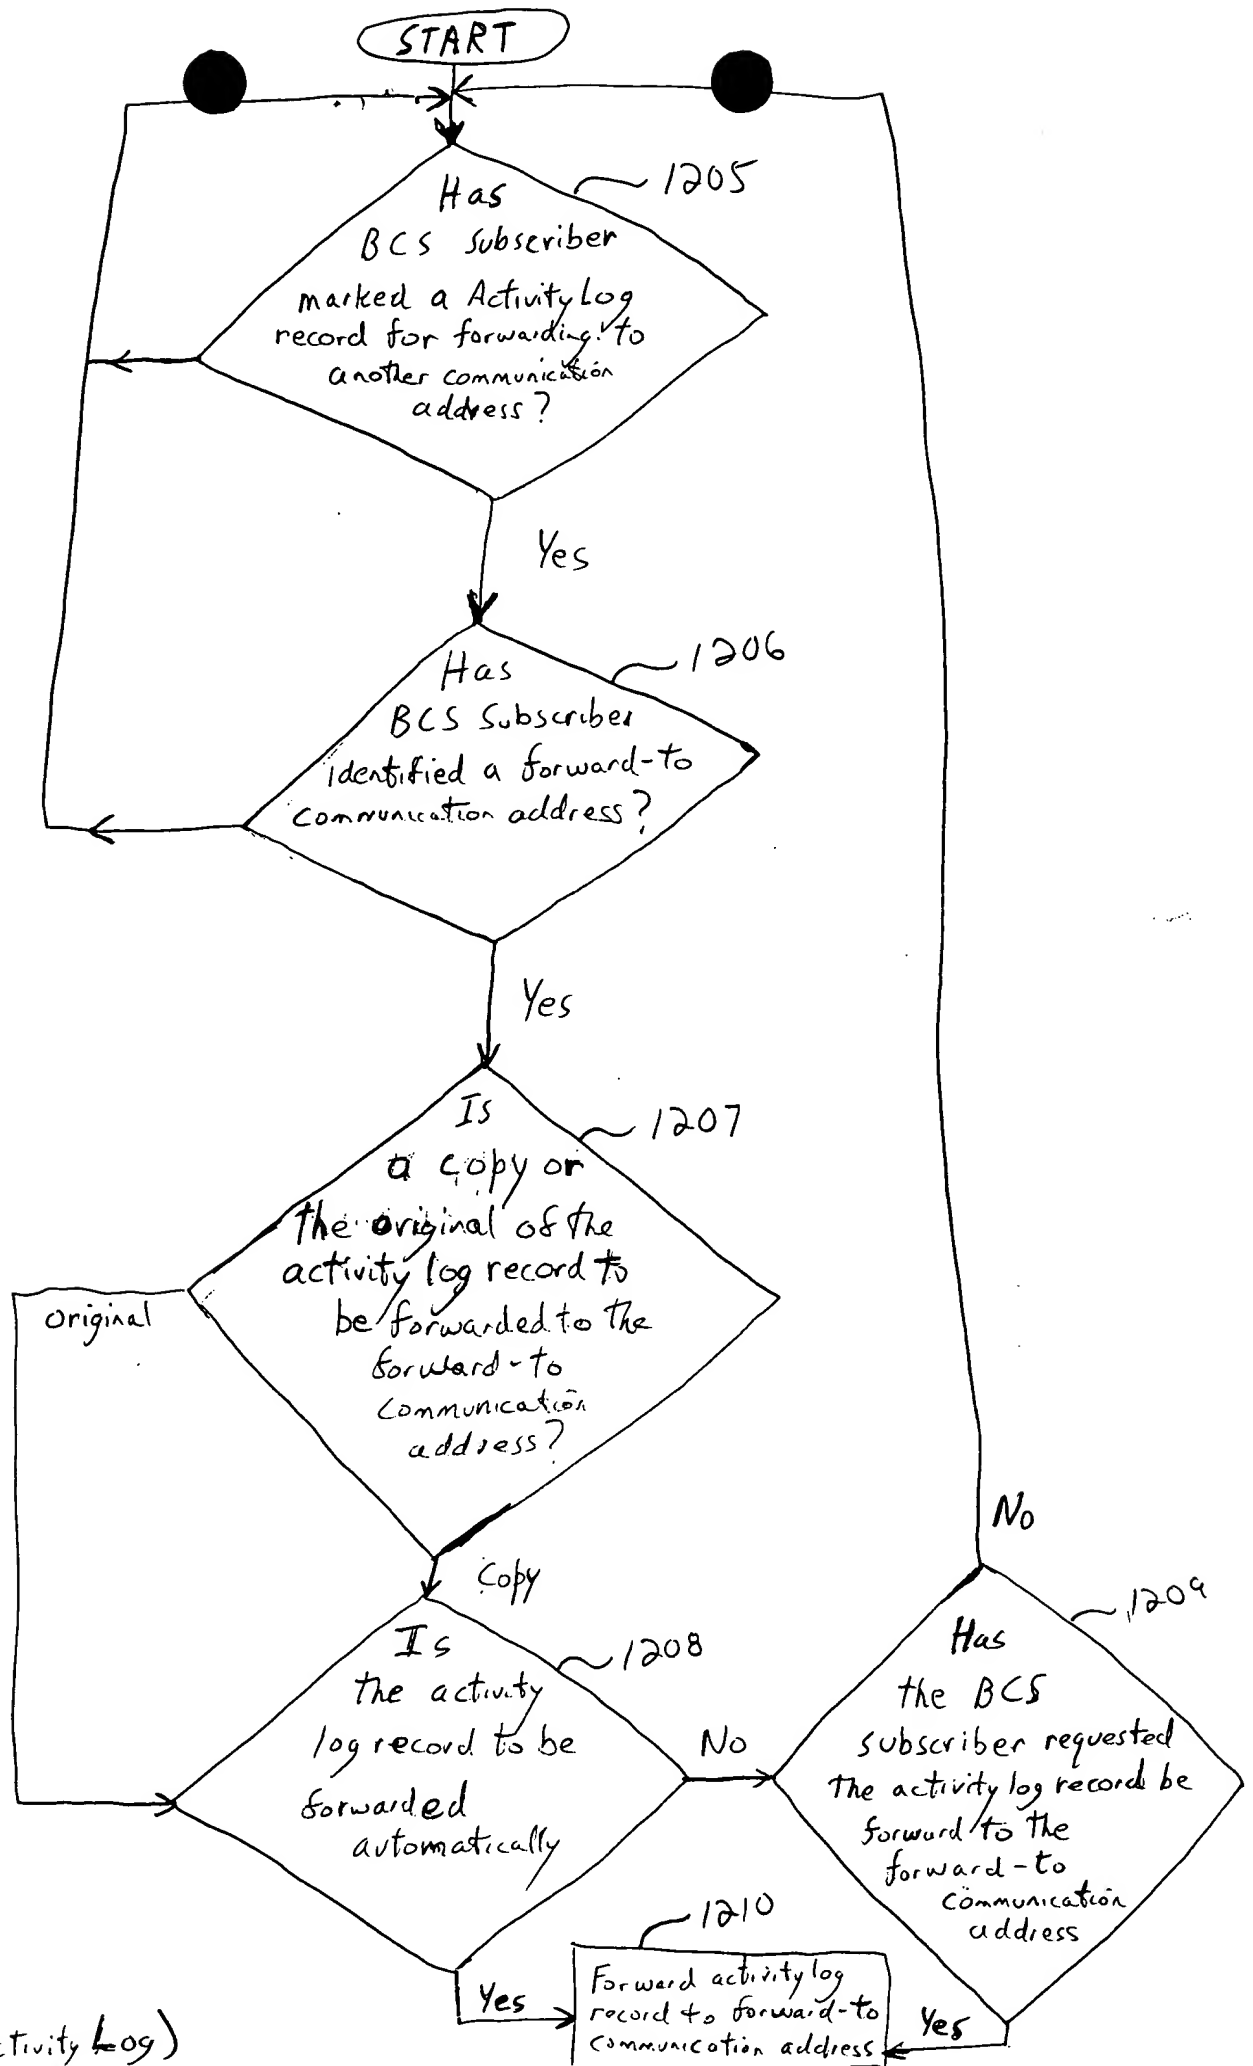 START
1205
Has
BCS Subscriber
marked a Activity Log
record for forwarding to
another communication
address?
Yes
1206
Has
BCS Subscriber
identified a forward-to
communication address?
Yes
1207
Is
a copy or
the original of the
activity log record to
be forwarded to the
forward-to
communication
address?
original
Copy
No
1208
Is
the activity
log record to be
forwarded
automatically
No
1209
Has
the BCS
subscriber requested
the activity log record be
forward to the
forward-to
communication
address
1210
Forward activity log
record to forward-to
communication address
Yes
Yes
ctivity Log)